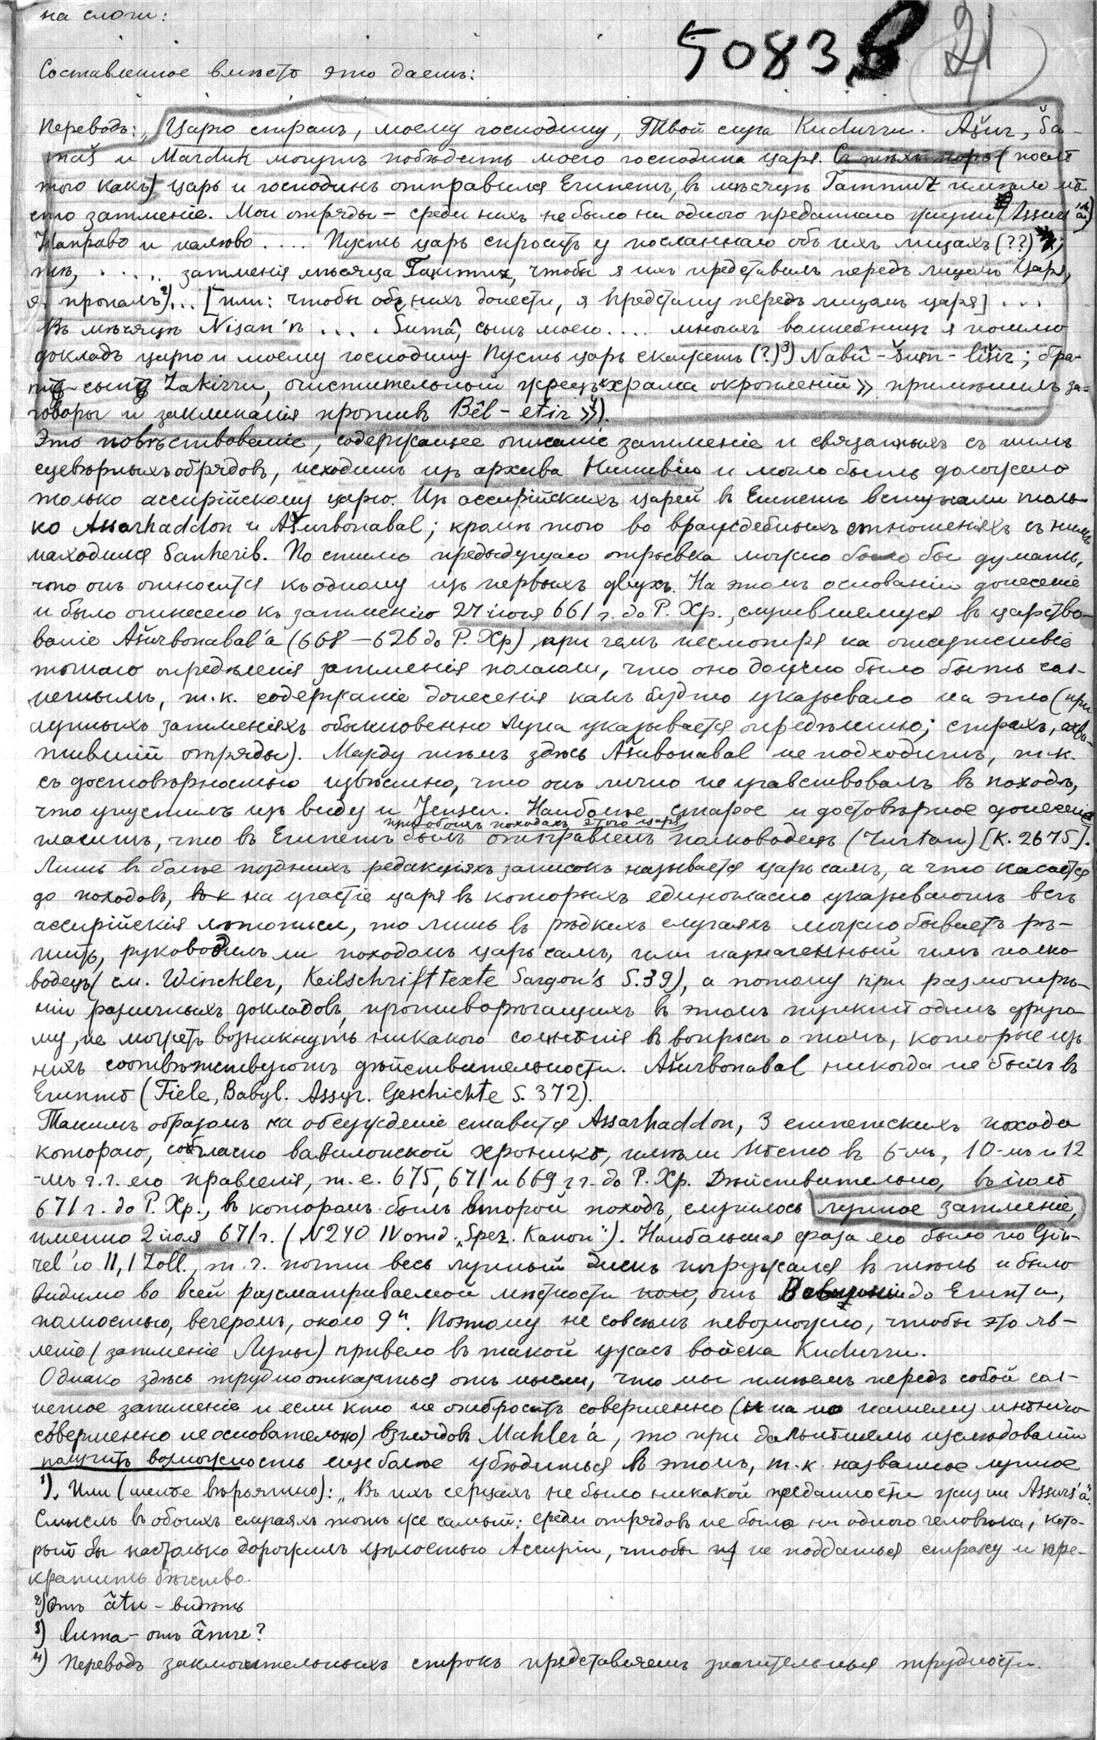 на слоги:
50838 21
Составленное вместо это даетъ:
Переводъ: „Царю странъ, моему господину, твой слуга Kudurru. Ašur, Ša-
maš и Marduk могутъ побѣдить моего господина царя. Съ тѣхъ поръ (послѣ
того какъ) царь и господинъ отправился Египетъ, въ мѣсяцѣ Tammuz имѣло мѣ-
сто затменіе. Мои отряды – среди нихъ не было ни одного преданнаго Assur'а¹)
Направо и налѣво .... Пусть царь спроситъ у посланнаго объ ихъ лицахъ (??);
..... затменія мѣсяца Tammuz, чтобы я ихъ представилъ передъ лицомъ царя,
я пропалъ²)... [или: чтобы объ нихъ донести, я предстану передъ лицомъ царя] ...
Въ мѣсяцѣ Nisan'ѣ .... Šumâ, сынъ моего .... многихъ волшебницъ я пошлю
докладъ царю и моему господину. Пусть царь скажетъ (?)³) Nabû-šum-lišir; бра-
сынъ Zakirru, очистительный жрецъ «храма окропленій» примѣнилъ за-
говоры и заклинанія противъ Bêl-eṭir»⁴).
Это повѣствованіе, содержащее описаніе затменіе и связанныхъ съ нимъ
суевѣрныхъ обрядовъ, исходитъ изъ архива Ниневіи и могло быть доложено
только ассирійскому царю. Изъ ассирійскихъ царей въ Египетъ вступали толь-
ко Assarhaddon и Ašurbanabal; кромѣ того во враждебныхъ отношеніяхъ съ нимъ
находился Sanherib. По стилю предыдущаго отрывка можно было бы думать,
что онъ относится къ одному изъ первыхъ двухъ. На этомъ основаніи донесеніе
и было отнесено къ затменію 27 іюня 661 г. до Р. Хр., случившемуся въ царство-
ваніе Ašurbonabal'а (668–626 до Р. Хр), при чемъ несмотря на отсутствіе
точнаго опредѣленія затменія полагали, что оно должно было быть сол-
нечнымъ, т.к. содержаніе донесенія какъ будто указывало на это (при
лунныхъ затменіяхъ обыкновенно Луна указывается опредѣленно; страхъ, охва-
тившій отряды). Между тѣмъ здѣсь Ašurbonabal не подходитъ, т.к.
съ достовѣрностью извѣстно, что онъ лично не участвовалъ въ походѣ,
что упустилъ изъ виду и Jensen. Наиболѣе старое и достовѣрное донесеніе
гласитъ, что въ Египетъ при обоихъ походахъ этого царя былъ отправленъ полководецъ (Turtan) [K. 2675].
Лишь въ болѣе позднихъ редакціяхъ записокъ называется царь самъ, а что касается
до походовъ, на участіе царя въ которыхъ единогласно указываютъ всѣ
ассирійскія лѣтописи, то лишь въ рѣдкихъ случаяхъ можно бываетъ рѣ-
шить, руководилъ ли походомъ царь самъ, или назначенный имъ полко-
водецъ (см. Winckler, Keilschrifttexte Sargon's S. 39), а потому при разсмотрѣ-
ніи различныхъ докладовъ, противорѣчащихъ въ этомъ пунктѣ одинъ друго-
му, не можетъ возникнуть никакого сомнѣнія въ вопросѣ о томъ, которые изъ
нихъ соотвѣтствуютъ дѣйствительности. Ašurbonabal никогда не былъ въ
Египтѣ (Tiele, Babyl. Assyr. Geschichte S. 372).
Такимъ образомъ на обсужденіе ставится Assarhaddon, 3 египетскихъ похода
котораго, согласно вавилонской хроникѣ, имѣли мѣсто въ 6-мъ, 10-мъ и 12
-мъ г.г. его правленія, т.е. 675, 671 и 669 г г. до Р. Хр. Дѣйствительно, въ іюлѣ
671 г. до Р. Хр., въ которомъ былъ второй походъ, случилось лунное затменіе,
именно 2 іюля 671 г. (N 240 IV отд. „Spez. Kanon"). Наибольшая фаза его было по Gin-
zel'ю 11,1 Zoll., т. ч. почти весь лунный дискъ погружался въ тѣнь и было
видимо во всей разсматриваемой мѣстности, отъ Вавилоніи до Египта,
полностью, вечеромъ, около 9ч. Поэтому не совсѣмъ невозможно, чтобы это яв-
леніе (затменіе Луны) привело въ такой ужасъ войска Kudurru.
Однако здѣсь трудно отказаться отъ мысли, что мы имѣемъ передъ собой сол-
нечное затменіе и если кто не отбросить совершенно (и по нашему мнѣнію
совершенно не основательно) взглядовъ Mahler'а, то при дальнѣйшемъ изслѣдованіи
получить возможность еще болѣе убѣдиться въ этомъ, т.к. названное лунное
¹). Или (менѣе вѣроятно): „Въ ихъ сердцахъ не было никакой преданности Assur'а".
Смыслъ въ обоихъ случаяхъ тотъ же самый: среди отрядовъ не было ни одного человѣка, кото-
рый бы настолько дорожилъ цѣлостью Ассиріи, чтобы не поддаться страху и пре-
кратить бѣгство.
²) Отъ âtu – видѣть
³) lima – отъ âmu?
⁴) Переводъ заключительныхъ строкъ представляетъ значительныя трудности.